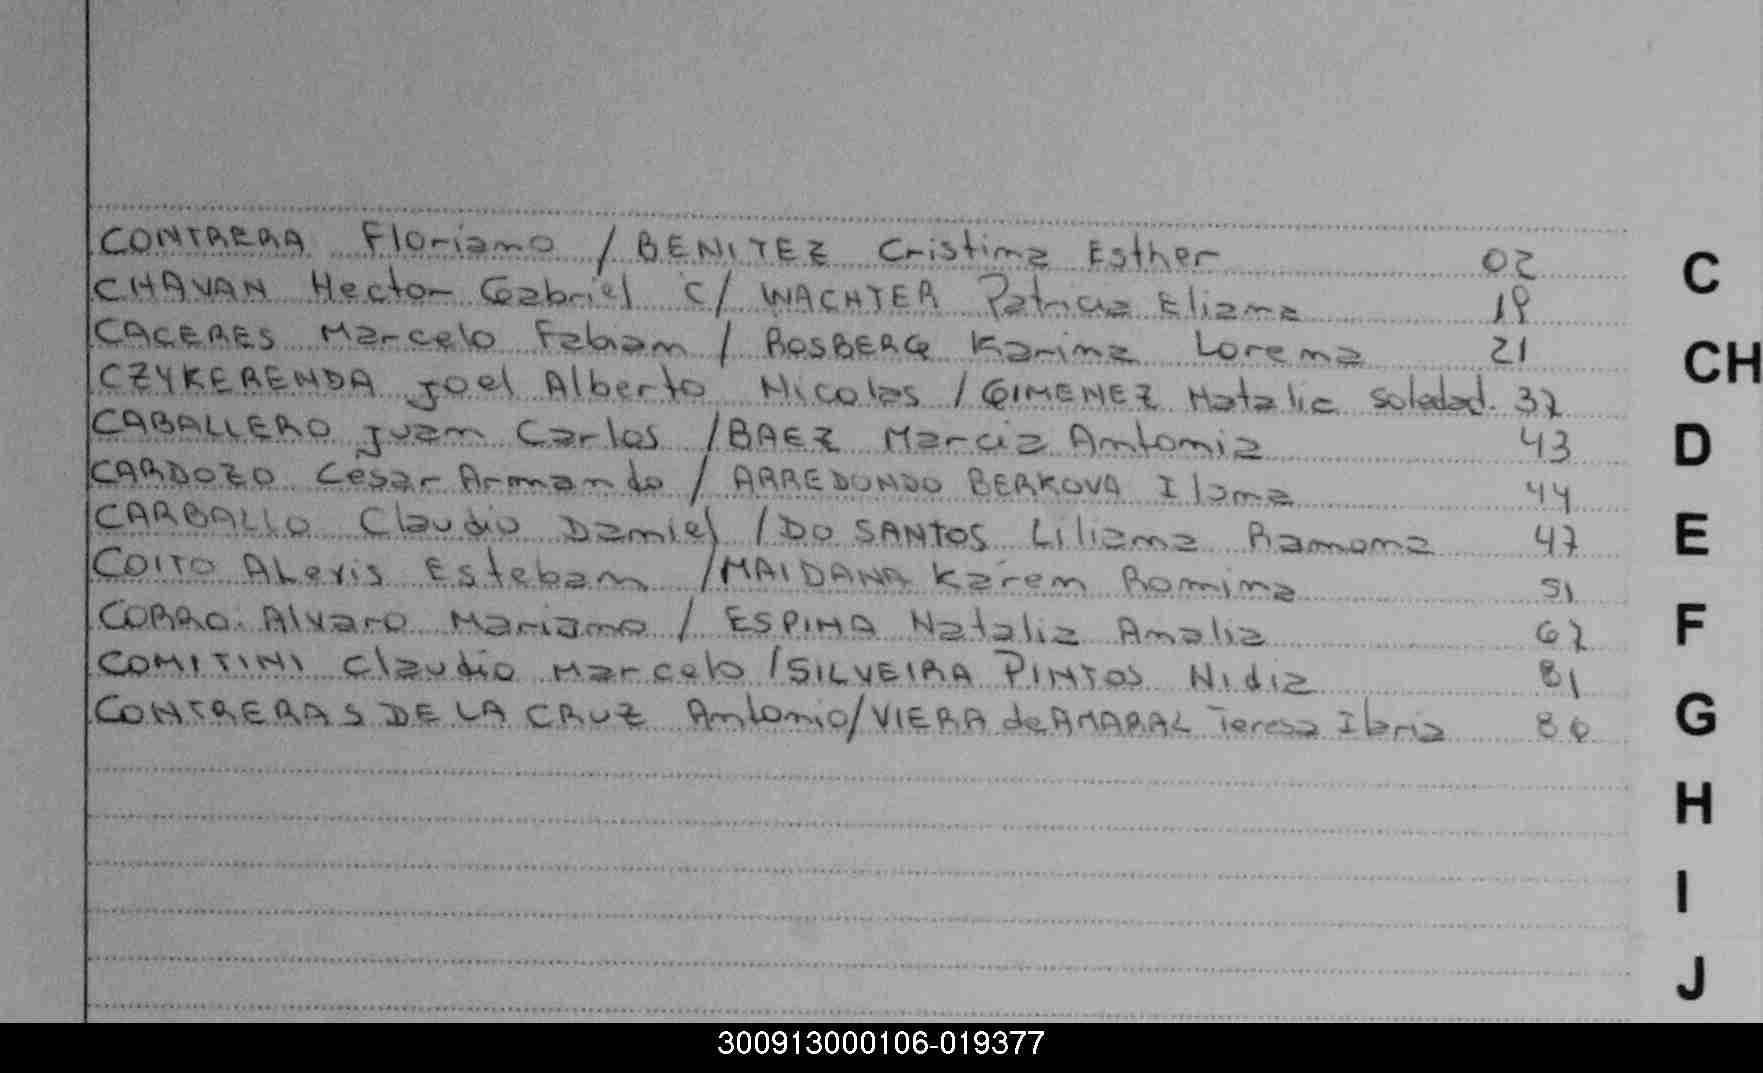 CONTRERA Floriano / BENITEZ Cristina Esther 02
CHAVAN Hector Gabriel C/ WACHTER Patricia Eliana 19
CACERES Marcelo Fabian / ROSBERG Karina Lorena 21
CZYKERENDA Joel Alberto Nicolas / GIMENEZ Natalia Soledad. 37
CABALLERO Juan Carlos / BAEZ Marcia Antonia 43
CARDOZO Cesar Armando / ARREDONDO BERKOVA Ilana 44
CARBALLO Claudio Daniel / DO SANTOS Liliana Ramona 47
COITO ALexis Esteban / MAIDANA Karen Romina 51
CORRO. Alvaro Mariano / ESPINA Natalia Analia 67
COMITINI Claudio Marcelo / SILVEIRA PINTOS Nidia 81
CONTRERAS DE LA CRUZ Antonio / VIERA de AMARAL Teresa Ilaria 86
C
CH
D
E
F
G
H
I
J
300913000106-019377